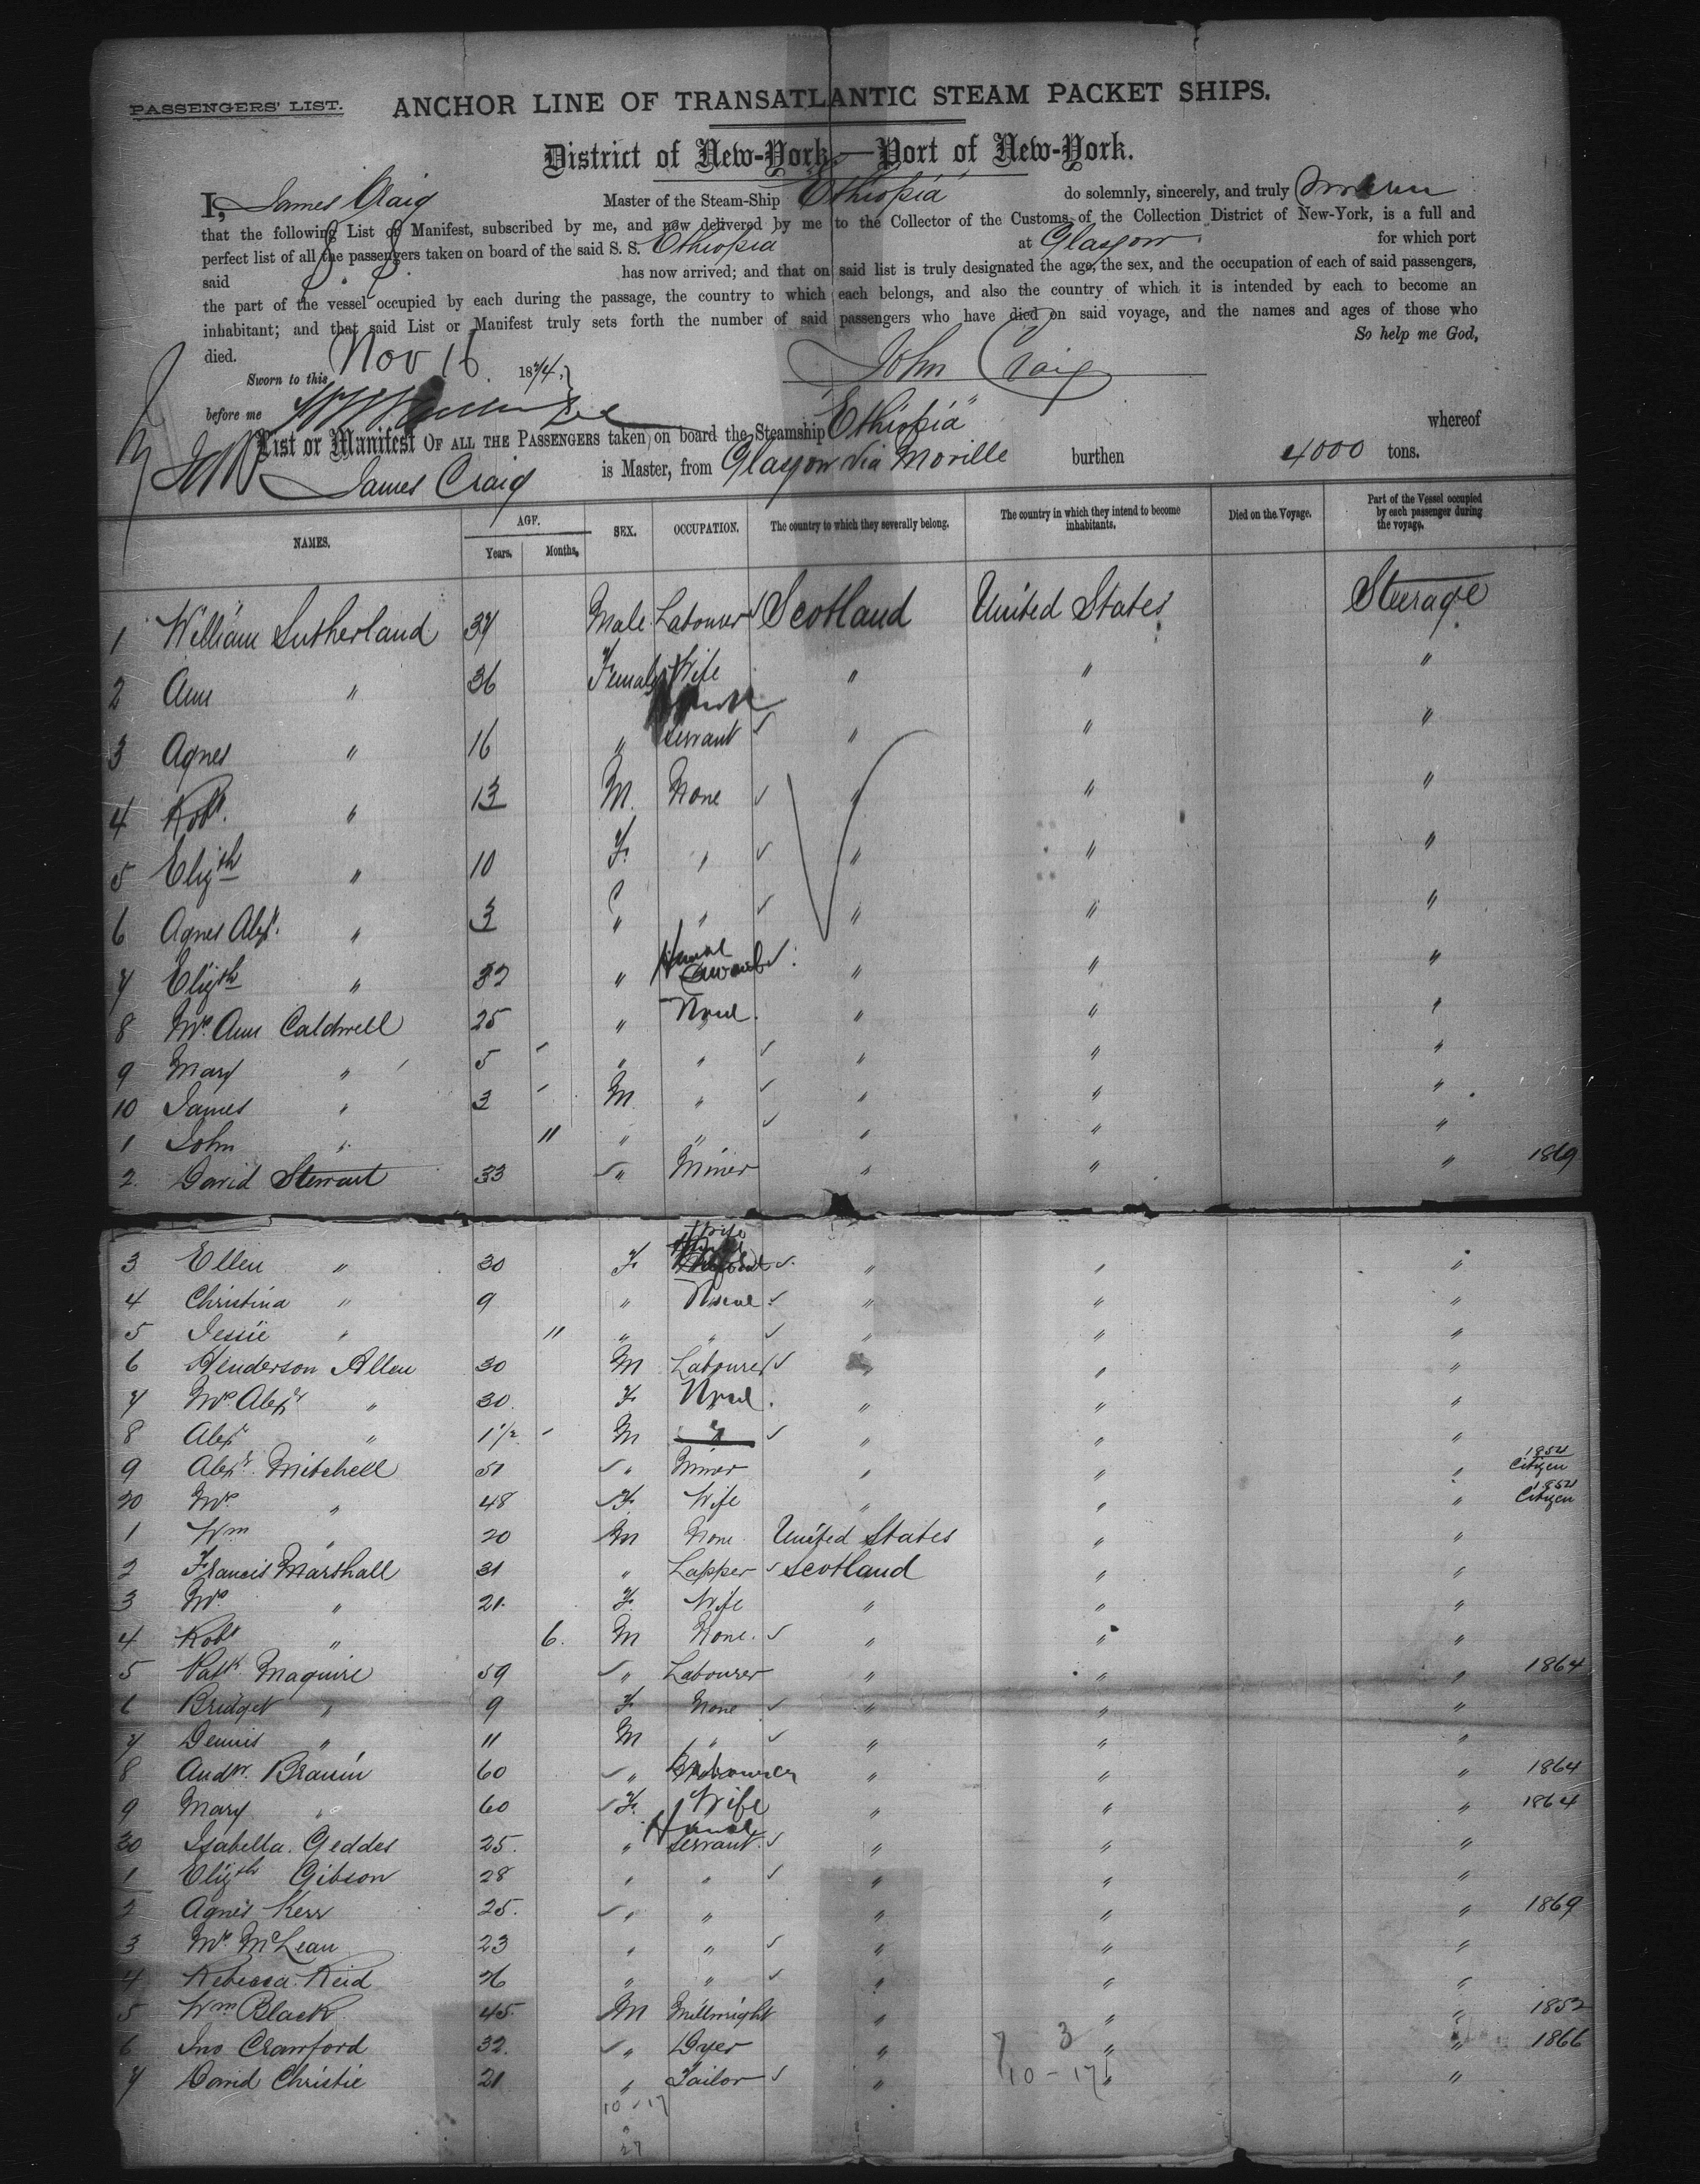 PASSENGERS' LIST.
ANCHOR LINE OF TRANSATLANTIC STEAM PACKET SHIPS.
District of New-York,—Port of New-York.
I, James Craig Master of the Steam-Ship "Ethiopia" do solemnly, sincerely, and truly swear
that the following List or Manifest, subscribed by me, and now delivered by me to the Collector of the Customs, of the Collection District of New-York, is a full and
perfect list of all the passengers taken on board of the said S. S. Ethiopia at Glasgow for which port
said has now arrived; and that on said list is truly designated the age, the sex, and the occupation of each of said passengers,
the part of the vessel occupied by each during the passage, the country to which each belongs, and also the country of which it is intended by each to become an
inhabitant; and that said List or Manifest truly sets forth the number of said passengers who have died on said voyage, and the names and ages of those who
died. So help me God,
Sworn to this Nov 16 1874, John Craig
before me
List or Manifest OF ALL THE PASSENGERS taken on board the Steamship "Ethiopia" whereof
James Craig is Master, from Glasgow via Moville burthen 4000 tons.
NAMES. AGE. Years. Months. SEX. OCCUPATION. The country to which they severally belong. The country in which they intend to become inhabitants. Died on the Voyage. Part of the Vessel occupied by each passenger during the voyage.
1 William Sutherland 37 Male Labourer Scotland United States Steerage
2 Ann " 36 Female Wife " " "
3 Agnes " 16 " Servant " " "
4 Robt. " 13 M. None " " "
5 Elizth " 10 F. " " " "
6 Agnes Alexr. " 3 " " " " "
7 Elizth " 32 " " " "
8 Mrs. Ann Caldwell 25 " None. " " "
9 Mary " 5 " " " " "
10 James " 3 M " " " "
1 John " 11 " " " " "
2. David Stewart 33 " Miner " " " 1869
3 Ellen " 30 F Wife " " "
4 Christina " 9 " None " " "
5 Jessie " 11 " " " " "
6 Henderson Allen 30 M Labourer " " "
7 Mrs. Alexr " 30. F. None. " " "
8 Alexr " 1½ M " " " "
9 Alexr. Mitchell 51 " Miner " " " 1854 Citizen
20 Mrs. " 48 F. Wife " " " 1854 Citizen
1 Wm " 20 M None United States " "
2 Francis Marshall 31 " Lapper Scotland " "
3 Mrs " 21. F. Wife " " "
4 Robt " 6. M None. " " "
5 Patk. Maguire 59 " Labourer " " " 1864
6 Bridget " 9 F. None " " "
7 Dennis " 11 M " " " "
8 Andw. Braun 60 " Labourer " " " 1864
9 Mary " 60 F. Wife " " " 1864
30 Isabella Geddes 25. " House Servant. " " "
1 Elizth Gibson 28 " " " " "
2 Agnes Kerr 25. " " " " " 1869
3 Mrs. McLean 23 " " " " "
4 Rebecca Reid 26 " " " " "
5 Wm. Black 45. M Millwright " " " 1852
6 Jno Crawford 32. " Dyer " " " 1866
7 David Christie 21 " Tailor " " "
7 3
10 - 17
10 - 17
27